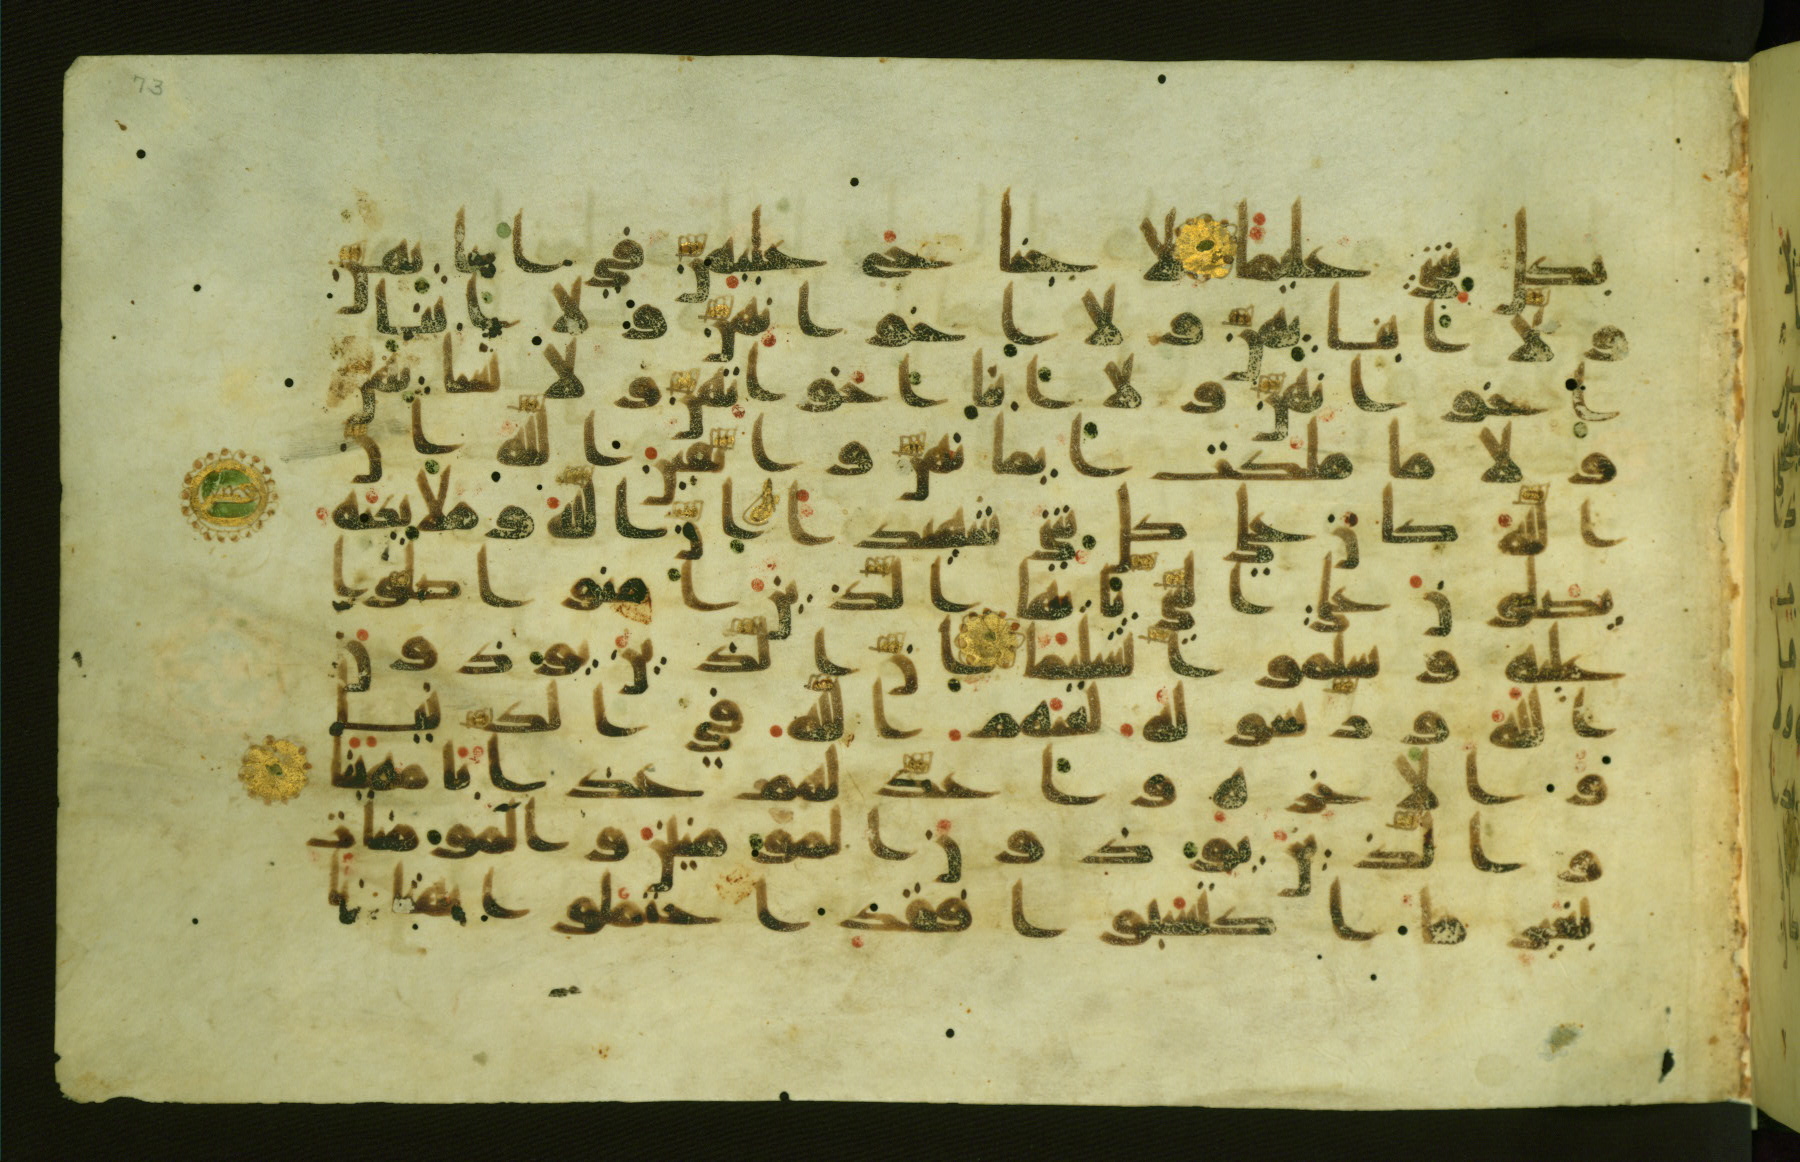 73
بكل شي عليما لا جناح عليهن في ابايهن
ولا ابنايهن ولا اخوانهن ولا ابنا
اخوانهن ولا ابنا اخواتهن ولا نسايهن
ولا ما ملكت ايمانهن واتقين الله ان
الله كان على كل شي شهيدا ان الله وملايكته
يصلون على النبي يايها الذين امنوا صلوا
عليه وسلموا تسليما ان الذين يوذون
الله ورسوله لعنهم الله في الدنيا
والاخرة واعد لهم عذابا مهينا
والذين يوذون المومنين والمومنات
بغير ما اكتسبوا فقد احتملوا بهتانا